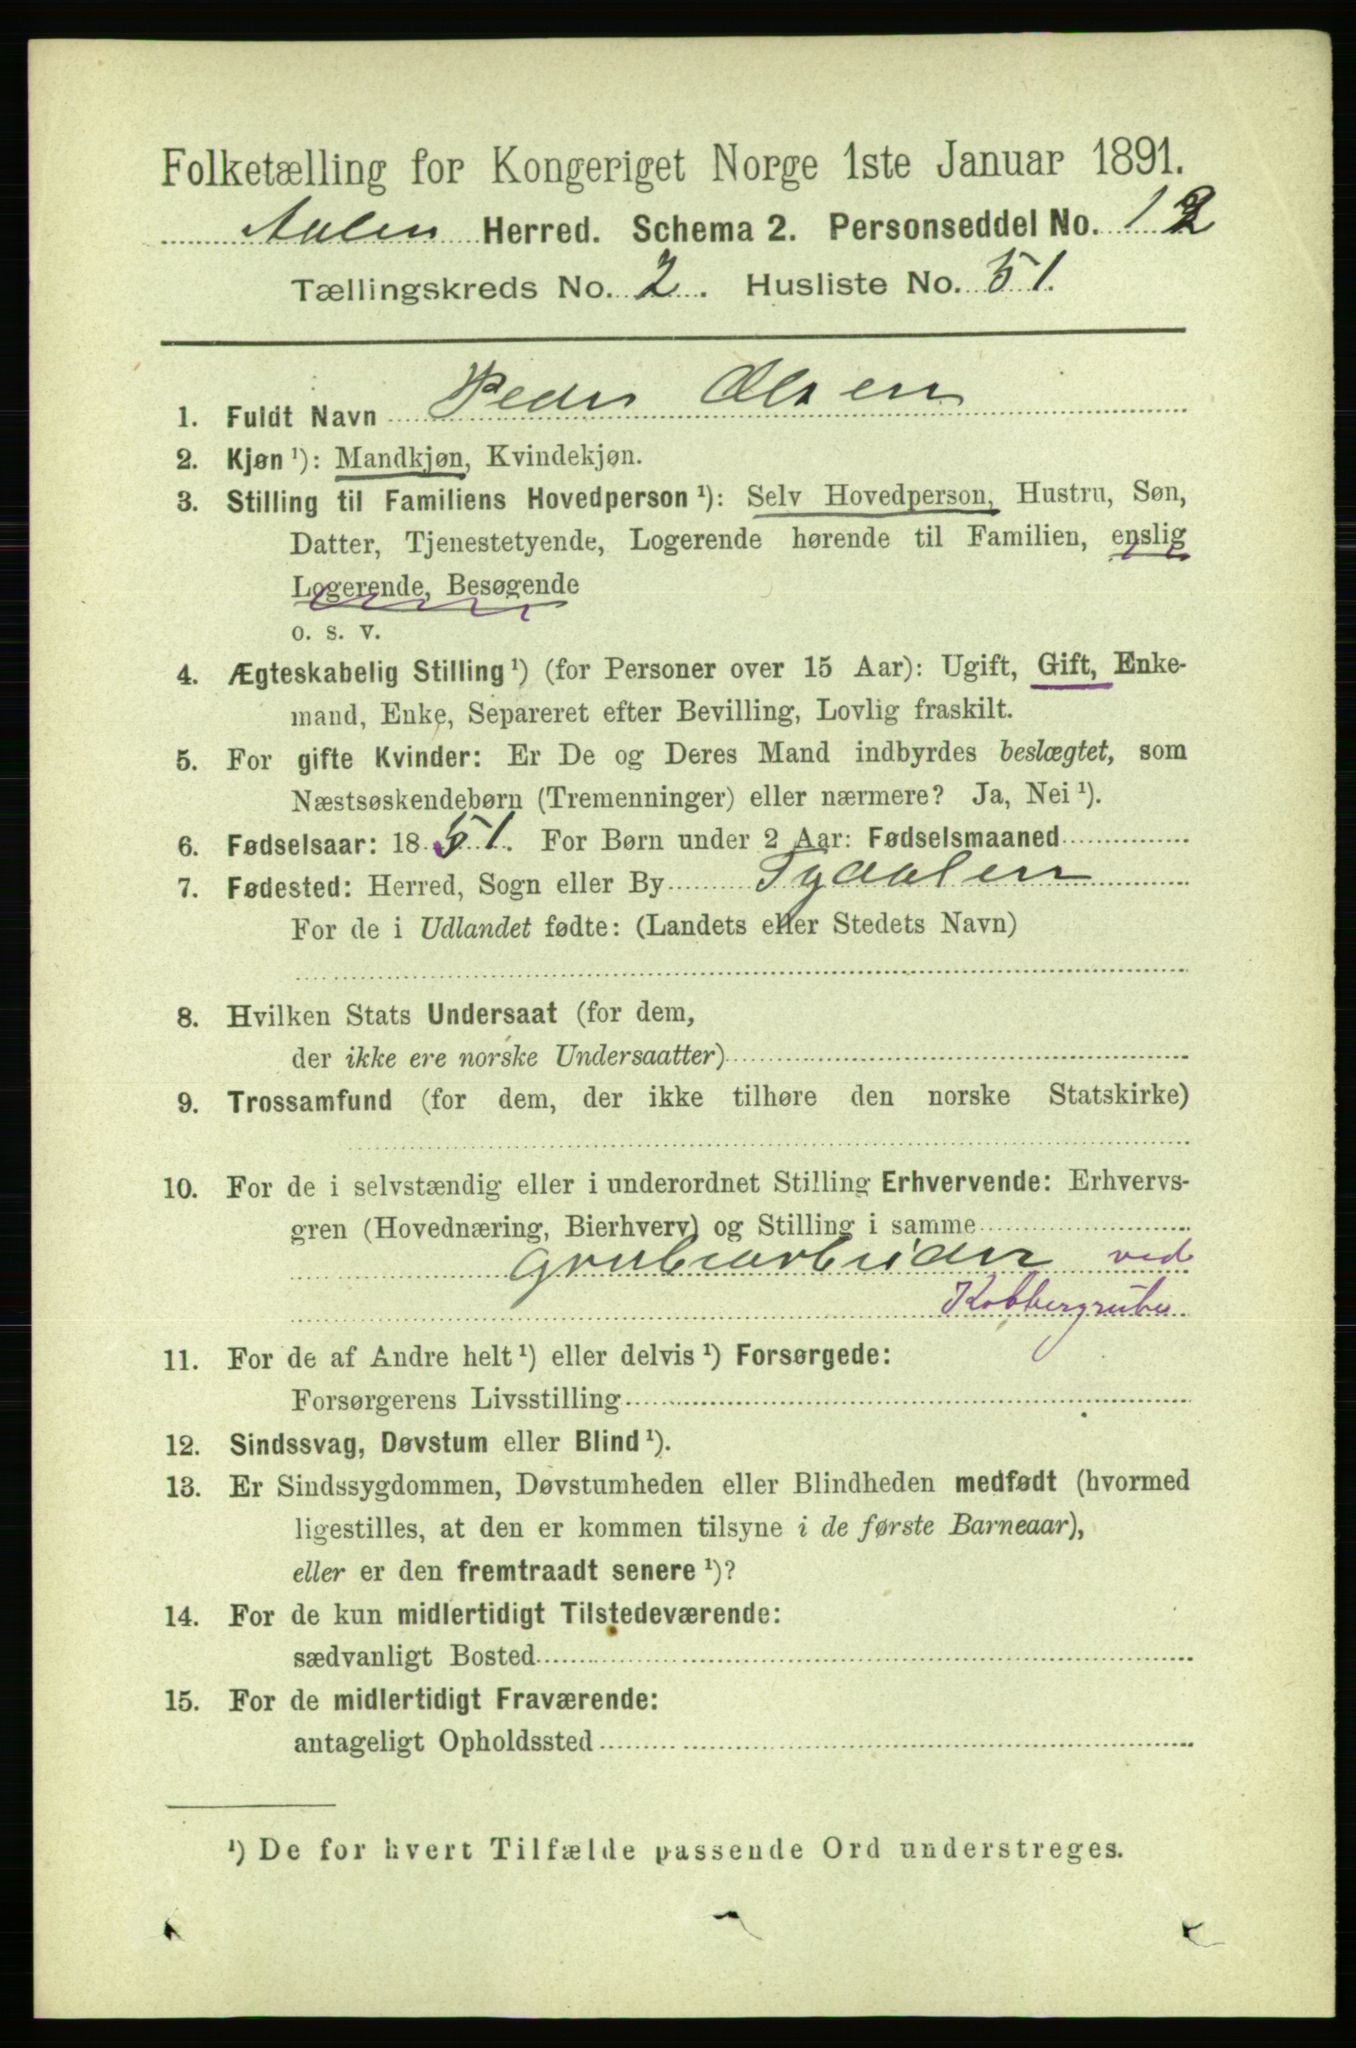 Folketælling for Kongeriget Norge 1ste Januar 1891.
Aalen Herred. Schema 2. Personseddel No. 12
Tællingskreds No. 2. Husliste No. 51.
1. Fuldt Navn Peder Olsen
2. Kjøn ¹): Mandkjøn, Kvindekjøn.
3. Stilling til Familiens Hovedperson ¹): Selv Hovedperson, Hustru, Søn,
Datter, Tjenestetyende, Logerende hørende til Familien, enslig
Logerende, Besøgende
o. s. v.
4. Ægteskabelig Stilling ¹) (for Personer over 15 Aar): Ugift, Gift, Enke-
mand, Enke, Separeret efter Bevilling, Lovlig fraskilt.
5. For gifte Kvinder: Er De og Deres Mand indbyrdes beslægtet, som
Næstsøskendebørn (Tremenninger) eller nærmere? Ja, Nei ¹).
6. Fødselsaar: 1851. For Børn under 2 Aar: Fødselsmaaned
7. Fødested: Herred, Sogn eller By Tydalen
For de i Udlandet fødte: (Landets eller Stedets Navn)
8. Hvilken Stats Undersaat (for dem,
der ikke ere norske Undersaatter)
9. Trossamfund (for dem, der ikke tilhøre den norske Statskirke)
10. For de i selvstændig eller i underordnet Stilling Erhvervende: Erhvervs-
gren (Hovednæring, Bierhverv) og Stilling i samme
Grubearbeider ved
Kobbergrube
11. For de af Andre helt ¹) eller delvis ¹) Forsørgede:
Forsørgerens Livsstilling
12. Sindssvag, Døvstum eller Blind ¹).
13. Er Sindssygdommen, Døvstumheden eller Blindheden medfødt (hvormed
ligestilles, at den er kommen tilsyne i de første Barneaar),
eller er den fremtraadt senere ¹)?
14. For de kun midlertidigt Tilstedeværende:
sædvanligt Bosted
15. For de midlertidigt Fraværende:
antageligt Opholdssted
¹) De for hvert Tilfælde passende Ord understreges.